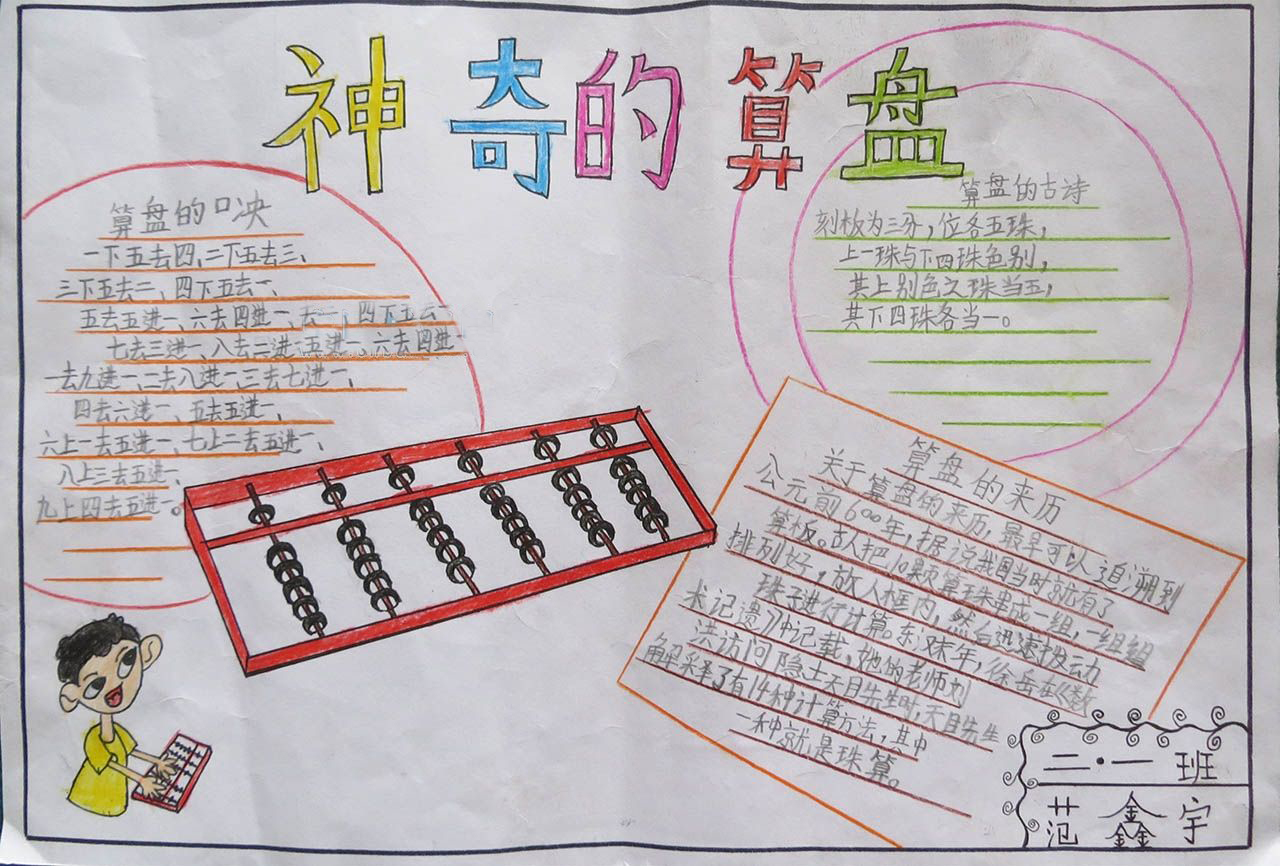 神奇的算盘
算盘的口决
一下五去四、二下五去三、
三下五去二、四下五去一、
五去五进一、六去四进一、去一，四下五去一
七去三进一、八去二进一五进一、六去四进
一去九进一、二去八进一、三去七进一、
四去六进一、五去五进一、
六上一去五进一、七上二去五进一、
八上三去五进一、
九上四去五进一。
算盘的古诗
刻板为三分，位各五珠，
上一珠与下四珠色别，
其上别色之珠当五，
其下四珠各当一。
算盘的来历
关于算盘的来历，最早可以追溯到
公元前600年，据说我国当时就有了
算板。古人把10颗算珠串成一组，一组组
排列好，放入框内，然后迅速拨动
珠子进行计算。东汉末年，徐岳《数
术记遗》中记载，她的老师刘
洪访问隐士天目先生时，天目先生
解释了有14种计算方法，其中
一种就是珠算。
二·一班
范鑫宇